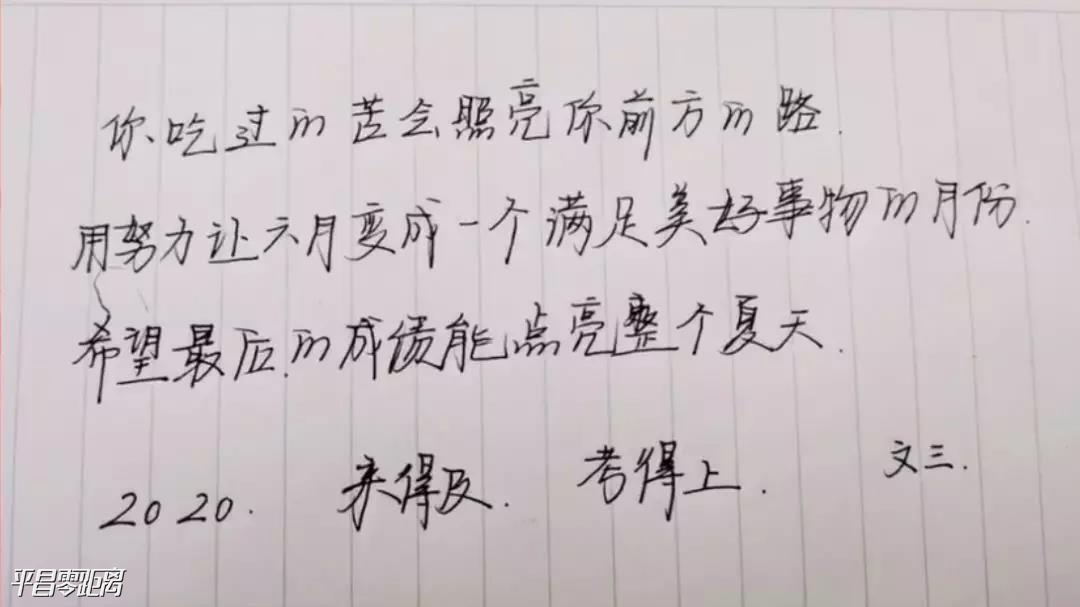 你吃过的苦会照亮你前方的路.
用努力让六月变成一个满足美好事物的月份.
希望最后的成绩能点亮整个夏天.
2020. 来得及. 考得上. 文三.
平昌零距离